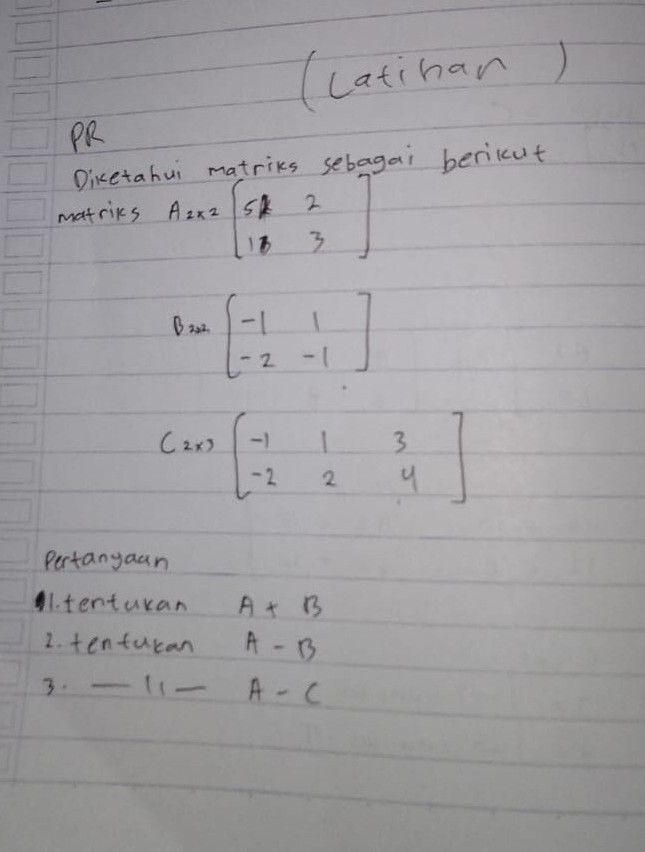 (Latihan)
PR
Diketahui matriks sebagai berikut
matriks A2x2 [5 2
1 3]
B2x2 [-1 1
-2 -1]
C2x3 [-1 1 3
-2 2 4]
Pertanyaan
1. tentukan A + B
2. tentukan A - B
3. — 11 — A - C